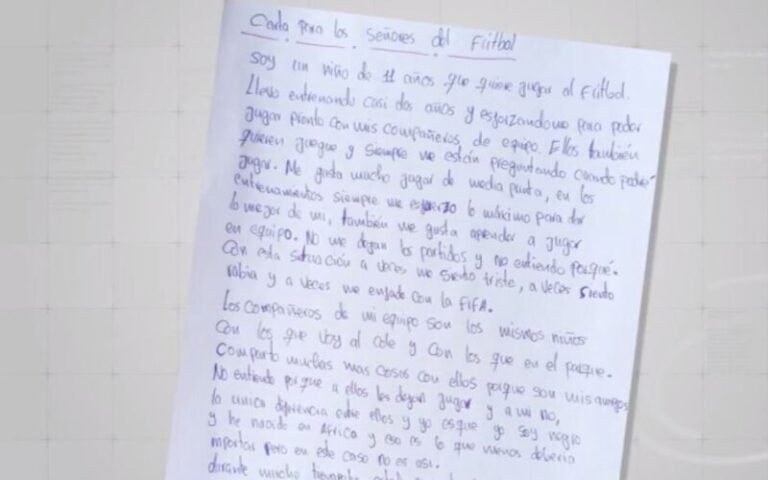 Carta para los señores del Fútbol
Soy un niño de 11 años que quiere jugar al Fútbol.
Llevo entrenando casi dos años y esforzandome para poder
jugar pronto con mis compañeros de equipo. Ellos también
quieren juegue y siempre me están preguntando cuando podré
jugar. Me gusta mucho jugar de media punta, en los
entrenamientos siempre me esfuerzo lo máximo para dar
lo mejor de mi, también me gusta aprender a jugar
en equipo. No me dejan los partidos y no entiendo porqué.
Con esta situación a veces me siento triste, a veces siento
rabia y a veces me enfado con la FIFA.
Los compañeros de mi equipo son los mismos niños
con los que voy al cole y con los que en el parque.
Comparto muchas mas cosas con ellos porque son mis amigos
No entiendo porque a ellos les dejan jugar y a mi no,
la unica diferencia entre ellos y yo es que yo soy negro
y he nacido en Africa y eso es lo que menos deberia
importar pero en este caso no es asi.
durante mucho tiempo